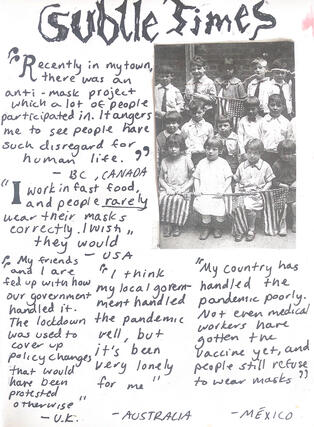 Subtle Times
"Recently in my town,
there was an
anti-mask project
which a lot of people
participated in. It angers
me to see people have
such disregard for
human life."
- BC, CANADA
"I work in fast food,
and people rarely
wear their masks
correctly. I wish
they would"
- USA
"My friends
and I are
fed up with how
our government
handled it.
The lockdown
was used to
cover up
policy changes
that would
have been
protested
otherwise"
- U.K.
"I think
my local govern-
ment handled
the pandemic
well, but
it's been
very lonely
for me"
- AUSTRALIA
"My country has
handled the
pandemic poorly.
Not even medical
workers have
gotten the
vaccine yet, and
people still refuse
to wear masks"
- MÉXICO